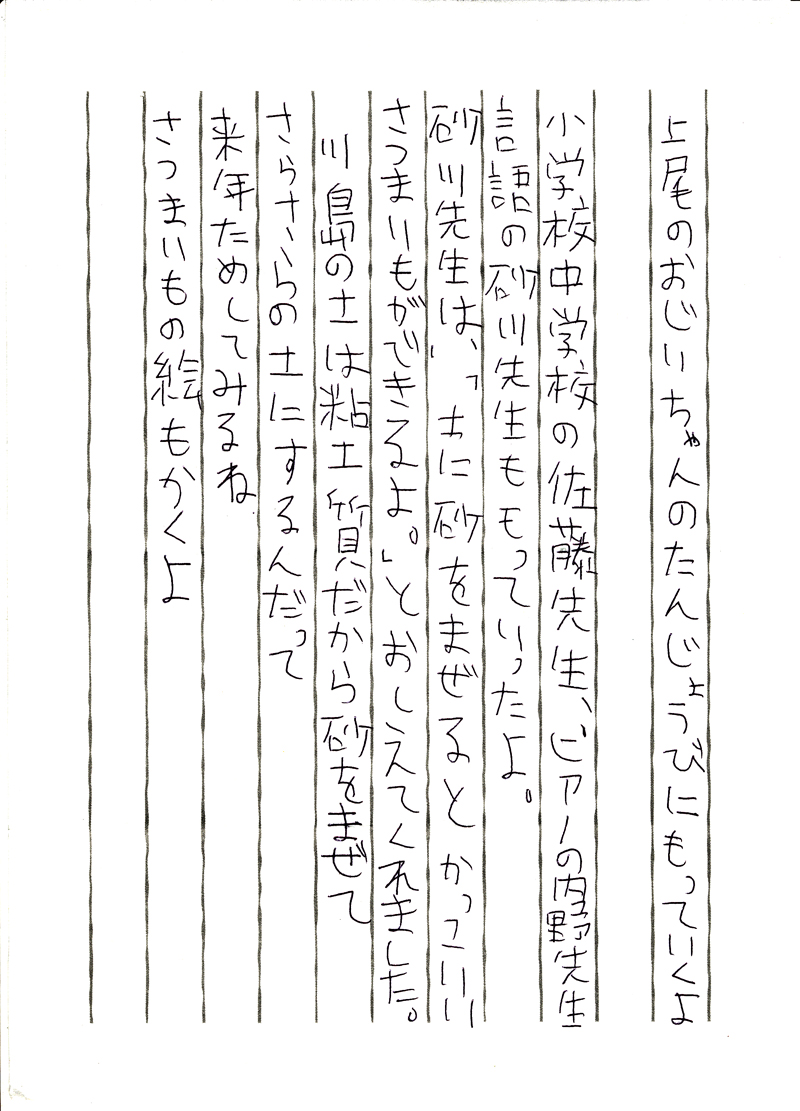 上尾のおじいちゃんのたんじょうびにもっていくよ
小学校中学校の佐藤先生、ピアノの内野先生
言語の砂川先生ももっていったよ。
砂川先生は、「土に砂をまぜるとかっこいい
さつまいもができるよ。」とおしえてくれました。
川島の土は粘土質だから砂をまぜて
さらさらの土にするんだって
来年ためしてみるね
さつまいもの絵もかくよ